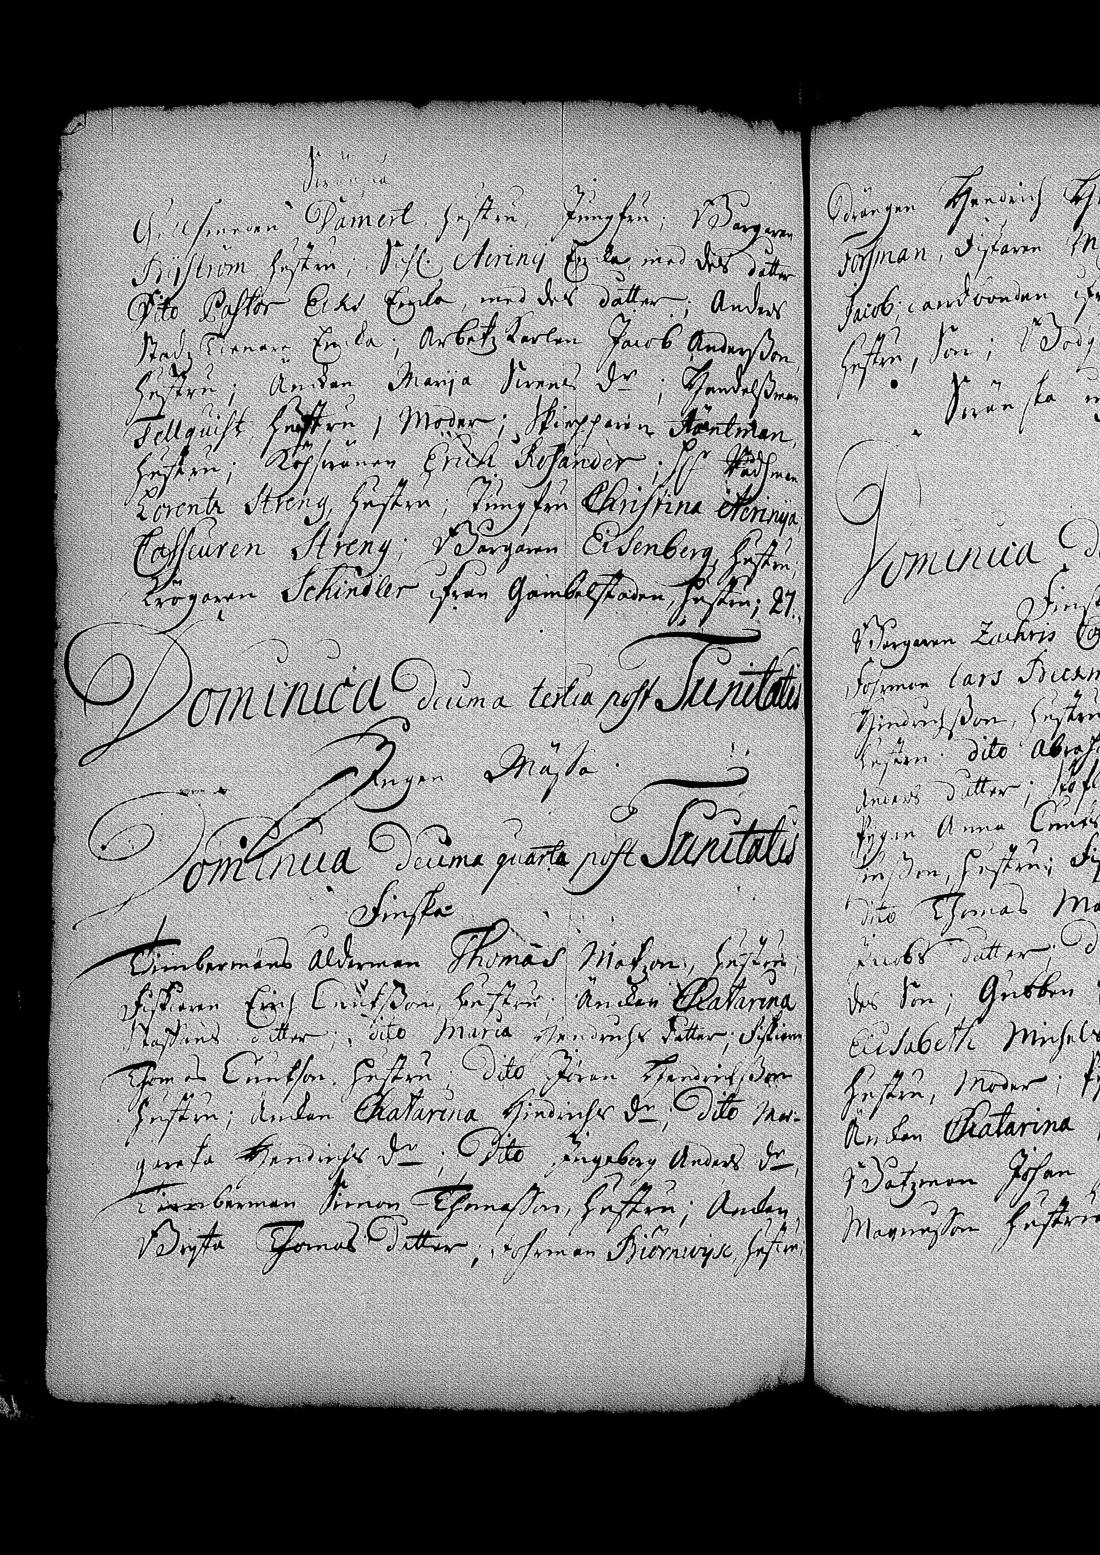 Swänska
Gullsmeden Damert, hustru, Jungfru; Borgaren
Fryström hustru; Sahl. Neriny Enckia, med des dotter
Dito Pastor Eeks Enckia, med des dotter; Anders
Stadz Tienare Enckia; Arbetz Karlen Jacob Andersson,
hustru; Änckan Marija Svens Dr; Handelsman
Tellquist, hustru, Moder; Skiepparen Häntman,
hustru; Köpswänen Erich Rosander; Rådman
Lorentz Streng, hustru, Jungfru Christina Nerinya,
Casseuren Streng; Borgaren Eisenberg, hustru;
Krögaren Schindler ifrån Gambelstaden, hustru; 27.
Dominica decima tertia post Trinitatis
Ingen Mässa.
Dominica decima quarta post Trinitatis
Finska
Timbermans Alderman Thomas Matzon, hustru;
Fiskaren Erich Cnutsson, hustru; Änckan Chatarina
Staffans dotter; dito Maria Hendrichs dotter; Fiskaren
Thomas Cnutson, hustru; Dito Jöran Hendrichsson
hustru; Änckan Chatarina Hindrichs Dr; Dito Mar-
gareta Hendrichs Dr; Dito Ingeborg Anders Dr,
Timberman Simon Thomasson, hustru; Änckan
Brijta Thomas Dotter; Fohrman Biörnwijk, hustru;
Drängen Hendrich
Forsman, Fiskaren
Jacob; Landbonden
hustru, Son; Bod
Swänska
Dominica
Finska
Borgaren Zachris
Fohrman Lars
Hindrichsson, hustru
hustru. dito Abrah
Anders dotter;
Pigan Anna Cnuts
hustru;
dito Thomas
Jacobs dotter;
des Son; Gubben
Elisabeth Michels
hustru, Moder;
Änckan Chatarina
Båtzman Johan
Magnusson hustru